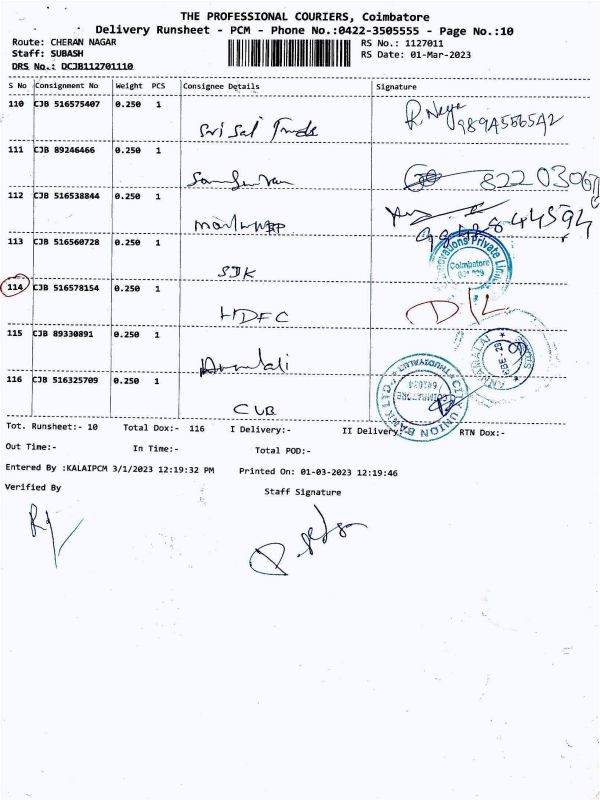 THE PROFESSIONAL COURIERS, Coimbatore
Delivery Runsheet - PCM - Phone No.:0422-3505555 - Page No.:10
Route: CHERAN NAGAR RS No.: 1127011
Staff: SUBASH RS Date: 01-Mar-2023
DRS No.: DCJB112701110
S No Consignment No Weight PCS Consignee Details Signature
110 CJB 516575407 0.250 1
Sri Sai Trads
111 CJB 89246466 0.250 1
112 CJB 516538844 0.250 1
113 CJB 516560728 0.250 1
Innovations Private Limi
Coimbatore
SIK
114 CJB 516578154 0.250 1
HDFC
D/L
115 CJB 89330891 0.250 1
116 CJB 516325709 0.250 1
CUB
CITY UNION BANK LTD.
COIMBATORE
641034
Tot. Runsheet:- 10 Total Dox:- 116 I Delivery:- II Delivery:- RTN Dox:-
Out Time:- In Time:- Total POD:-
Entered By :KALAIPCM 3/1/2023 12:19:32 PM Printed On: 01-03-2023 12:19:46
Verified By Staff Signature